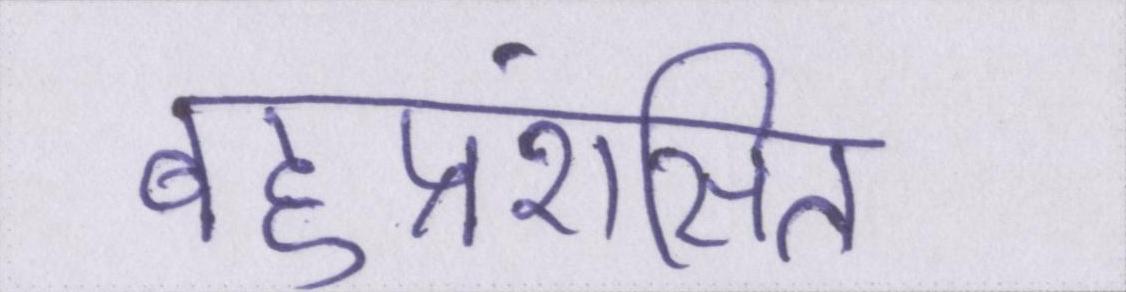 बहुप्रंशसित